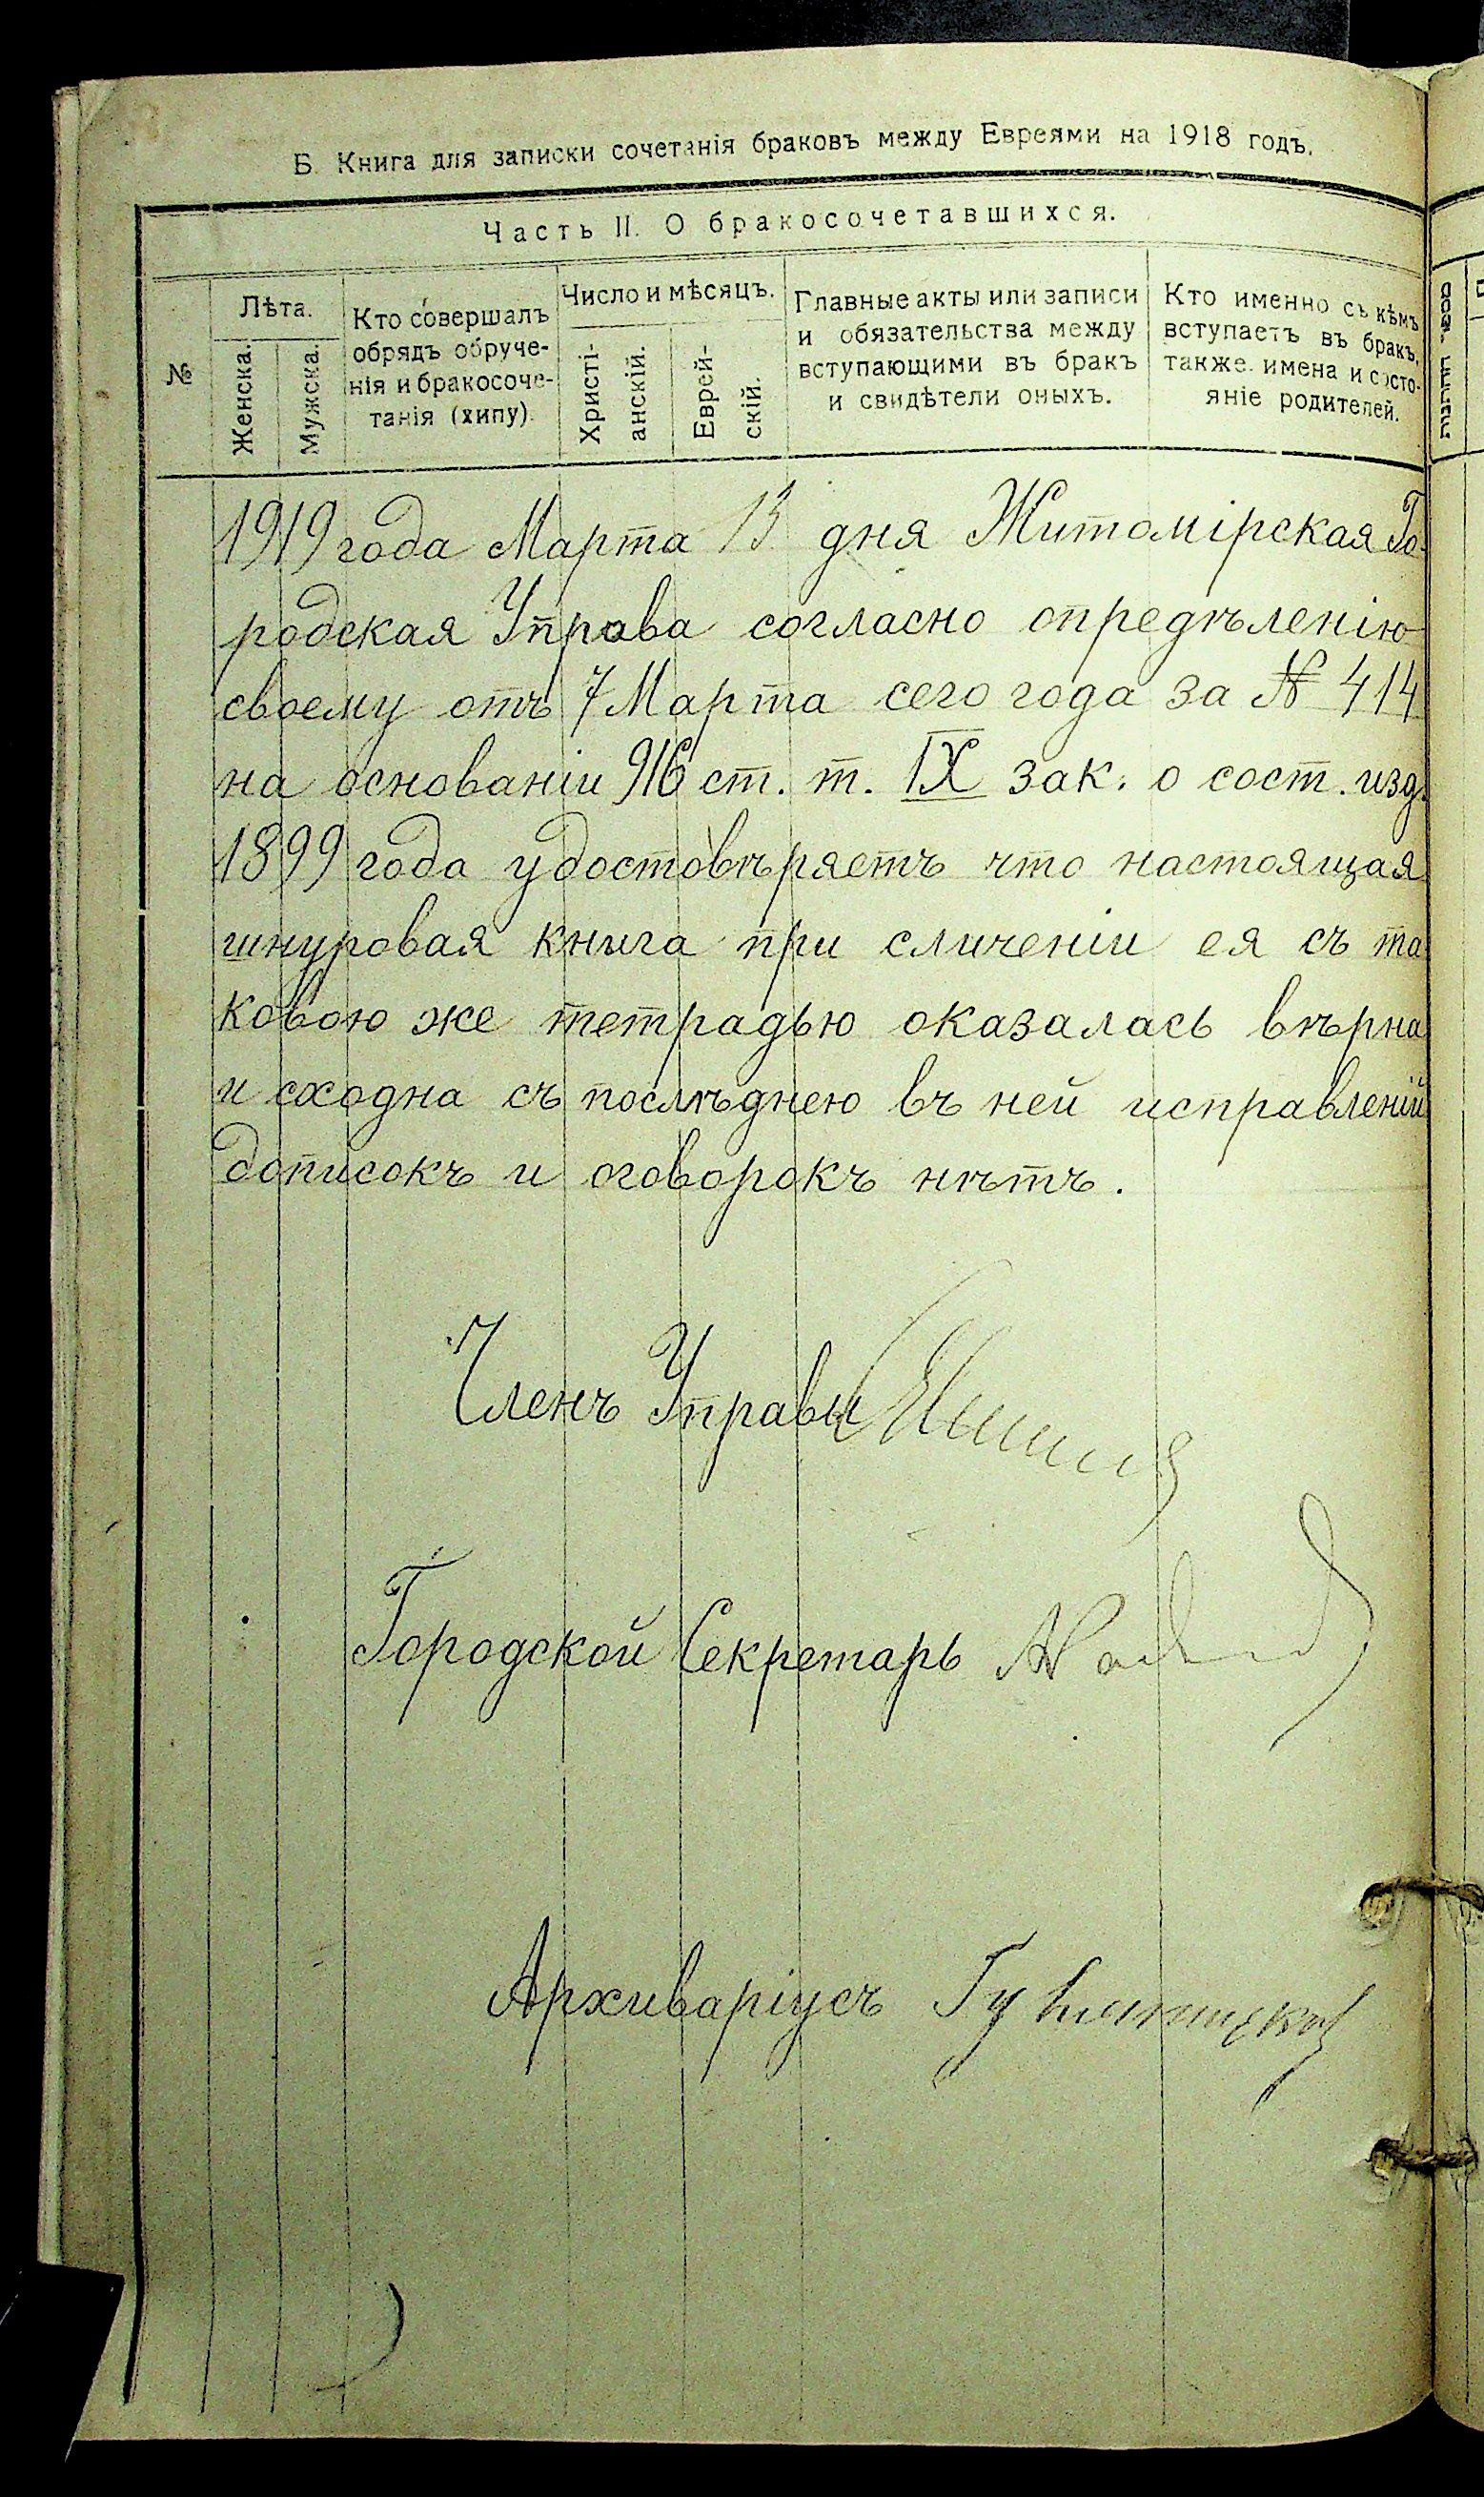 Б. Книга для записки сочетанія браковъ между Евреями на 1918 годъ.
Часть II. О бракосочетавшихся.
№
Лѣта.
Женска.
Мужска.
Кто совершалъ
обрядъ обруче-
нія и бракосоче-
танія (хипу).
Число и мѣсяцъ.
Христі-
анскій.
Еврей-
скій.
Главные акты или записи
и обязательства между
вступающими въ бракъ
и свидѣтели оныхъ.
Кто именно съ кѣмъ
вступаетъ въ бракъ,
также имена и состо-
яніе родителей.
1919 года Марта 13 дня Житомірская Го
родская Управа согласно опредѣленію
своему отъ 7 Марта сего года за № 414
на основаніи 916 ст. т. IX зак. о сост. изд.
1899 года удостовѣряетъ что настоящая
шнуровая книга при сличеніи ея съ та
ковою же тетрадью оказалась вѣрна
и сходна съ послѣднею въ ней исправленій
дописокъ и оговорокъ нѣтъ.
Членъ Управы
Городской Секретарь
Архиваріусъ